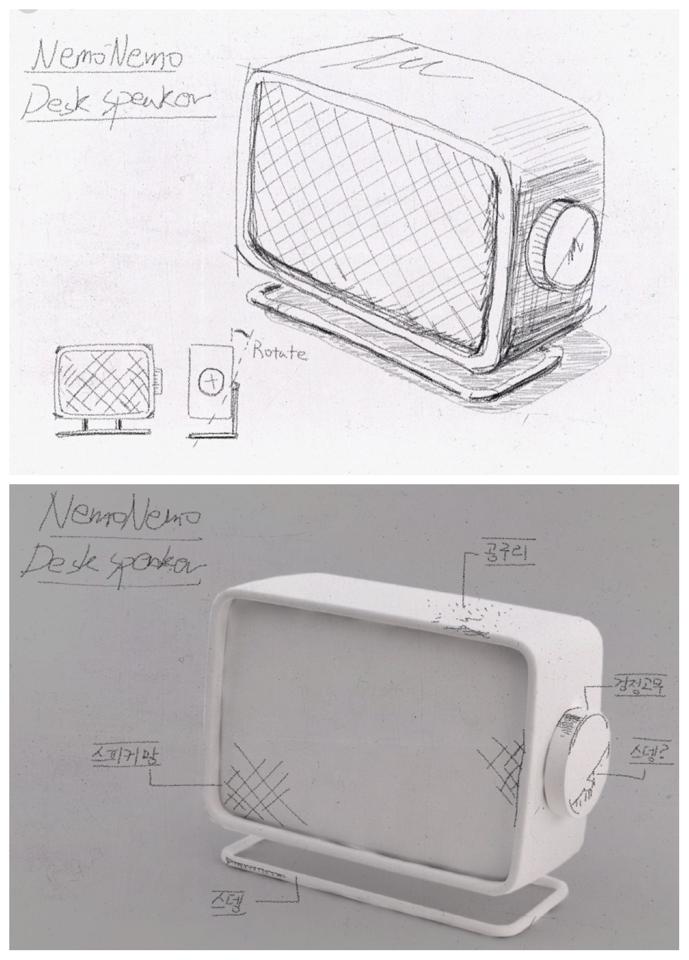 NemoNemo
Desk speaker
Rotate
NemoNemo
Desk speaker
공구리
검정고무
스피커망
스뎅?
스뎅